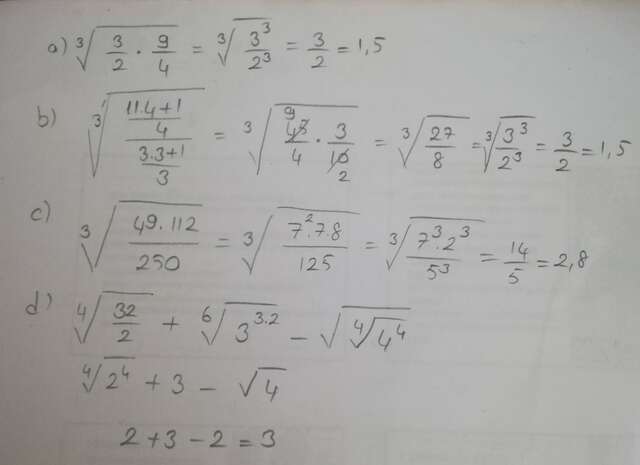 a) ∛(3/2 · 9/4) = ∛(3³/2³) = 3/2 = 1,5
b) ∛(((11.4+1)/4)/((3.3+1)/3)) = ∛(45/4 · 3/10) = ∛(27/8) = ∛(3³/2³) = 3/2 = 1,5
c) ∛((49.112)/250) = ∛((7².7.8)/125) = ∛((7³.2³)/5³) = 14/5 = 2,8
d) ∜(32/2) + ⁶√(3^(3.2)) − √(∜(4⁴))
∜(2⁴) + 3 − √4
2 + 3 − 2 = 3